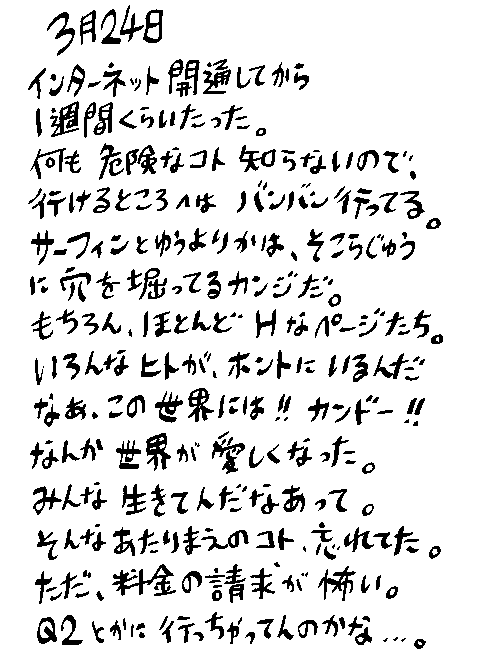 3月24日
インターネット開通してから
1週間くらいたった。
何も危険なコト知らないので、
行けるところへは バンバン行ってる。
サーフィンとゆうよりかは、そこらじゅう
に穴を掘ってるカンジだ。
もちろん、ほとんど Hなページたち。
いろんなヒトが、ホントにいるんだ
なぁ、この世界には!! カンドー!!
なんか世界が愛しくなった。
みんな生きてんだなあって。
そんなあたりまえのコト、忘れてた。
ただ、料金の請求が怖い。
Q2とかに行っちゃってんのかな…。